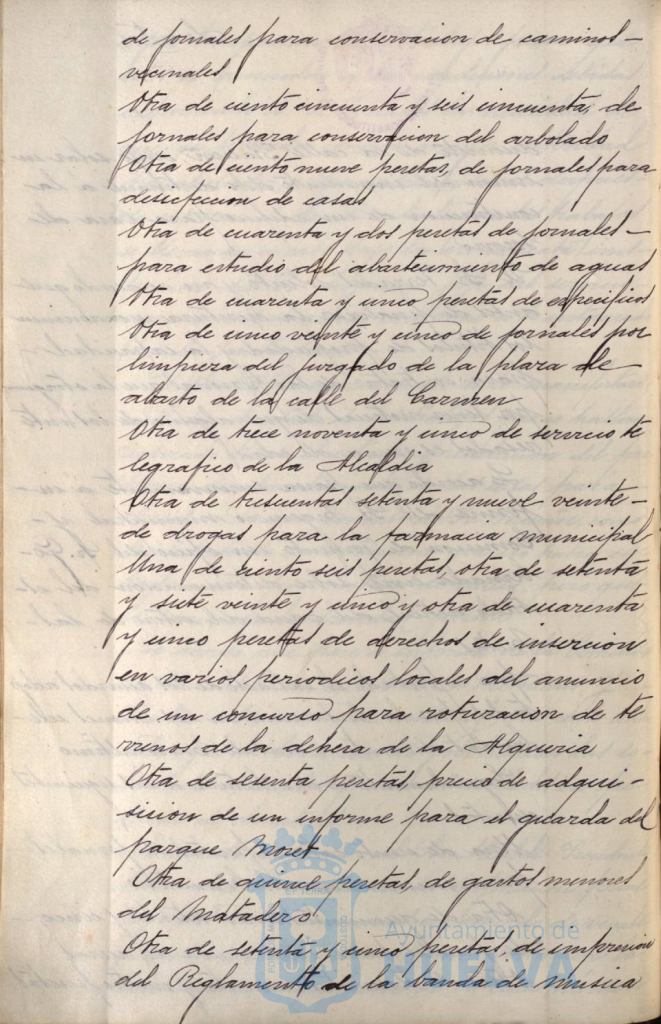 de jornales para conservacion de caminos
vecinales
Otra de ciento cincuenta y seis cincuenta, de
jornales para conservacion del arbolado
Otra de ciento nueve pesetas, de jornales para
desicfeccion de casas
Otra de cuarenta y dos pesetas de jornales
para estudio del abastecimiento de aguas
Otra de cuarenta y cinco pesetas de especificos
Otra de cinco veinte y cinco de jornales por
limpieza del juzgado de la plaza de
abasto de la calle del Carmen
Otra de trece noventa y cinco de servicio te
legrafico de la Alcaldia
Otra de trescientas setenta y nueve veinte
de drogas para la farmacia municipal
Una de ciento seis pesetas, otra de setenta
y siete veinte y cinco y otra de cuarenta
y cinco pesetas de derechos de insercion
en varios periodicos locales del anuncio
de un concurso para roturacion de te
rrenos de la dehesa de la Alqueria
Otra de sesenta pesetas, precio de adqui-
sicion de un informe para el guarda del
parque Moret
Otra de quince pesetas, de gastos menores
del Matadero
Otra de setenta y cinco pesetas, de impresion
del Reglamento de la banda de musica
Ayuntamiento de
HUELVA